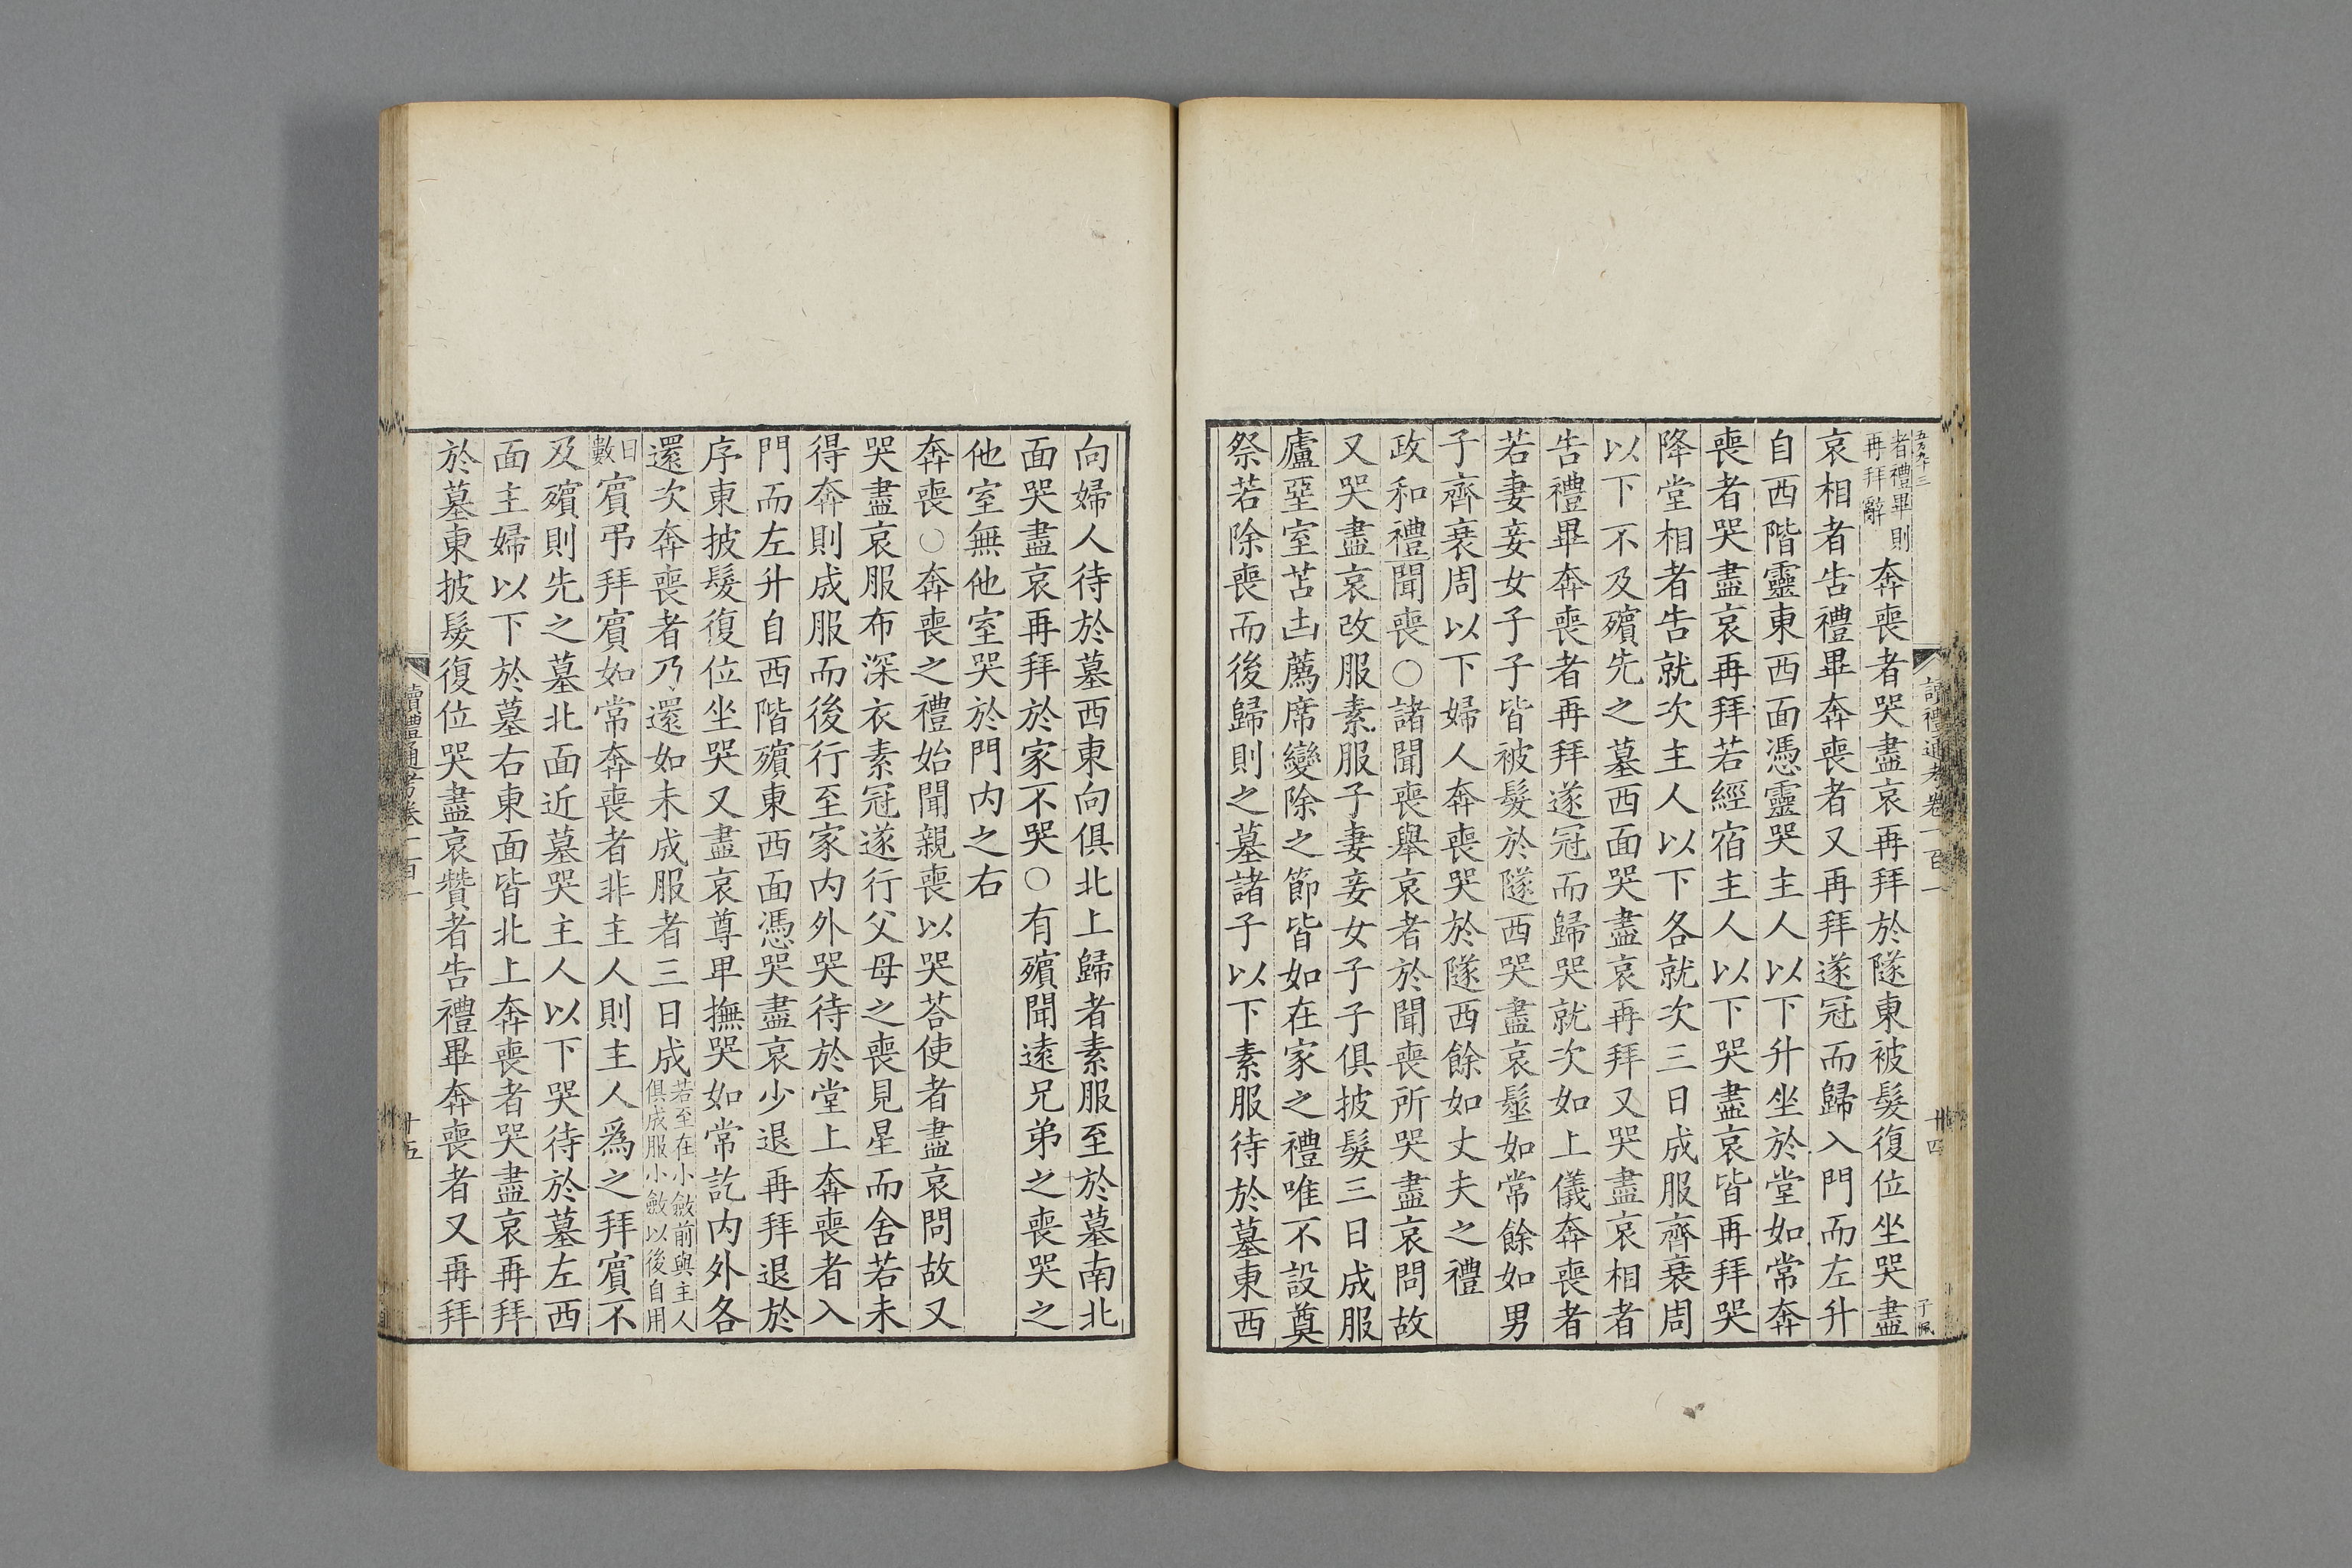 讀禮通考卷一百一
十四
者禮畢則再拜辭奔喪者哭盡哀再拜於隧東被髮復位坐哭盡
哀相者告禮畢奔喪者又再拜遂冠而歸入門而左升
自西階靈東西面憑靈哭主人以下升坐於堂如常奔
喪者哭盡哀再拜若經宿主人以下哭盡哀皆再拜哭
降堂相者告就次主人以下各就次三日成服齊衰周
以下不及殯先之墓西面哭盡哀再拜又哭盡哀相者
告禮畢奔喪者再拜遂冠而歸哭就次如上儀奔喪者
若妻妾女子子皆被髮於隧西哭盡哀髽如常餘如男
子齊衰周以下婦人奔喪哭於隧西餘如丈夫之禮
政和禮聞喪○諸聞喪舉哀者於聞喪所哭盡哀問故
又哭盡哀改服素服子妻妾女子子俱披髮三日成服
廬堊室苫凷薦席變除之節皆如在家之禮唯不設奠
祭若除喪而後歸則之墓諸子以下素服待於墓東西
向婦人待於墓西東向俱北上歸者素服至於墓南北
面哭盡哀再拜於家不哭○有殯聞遠兄弟之喪哭之
他室無他室哭於門内之右
奔喪○奔喪之禮始聞親喪以哭荅使者盡哀問故又
哭盡哀服布深衣素冠遂行父母之喪見星而舍若未
得奔則成服而後行至家内外哭待於堂上奔喪者入
門而左升自西階殯東西面憑哭盡哀少退再拜退於
序東披髮復位坐哭又盡哀尊卑撫哭如常訖内外各
還次奔喪者乃還如未成服者三日成若至在小斂前與主人俱成服小斂以後自用
日數賓弔拜賓如常奔喪者非主人則主人爲之拜賓不
及殯則先之墓北面近墓哭主人以下哭待於墓左西
面主婦以下於墓右東面皆北上奔喪者哭盡哀再拜
於墓東披髮復位哭盡哀贊者告禮畢奔喪者又再拜
讀禮通考卷一百一
十五